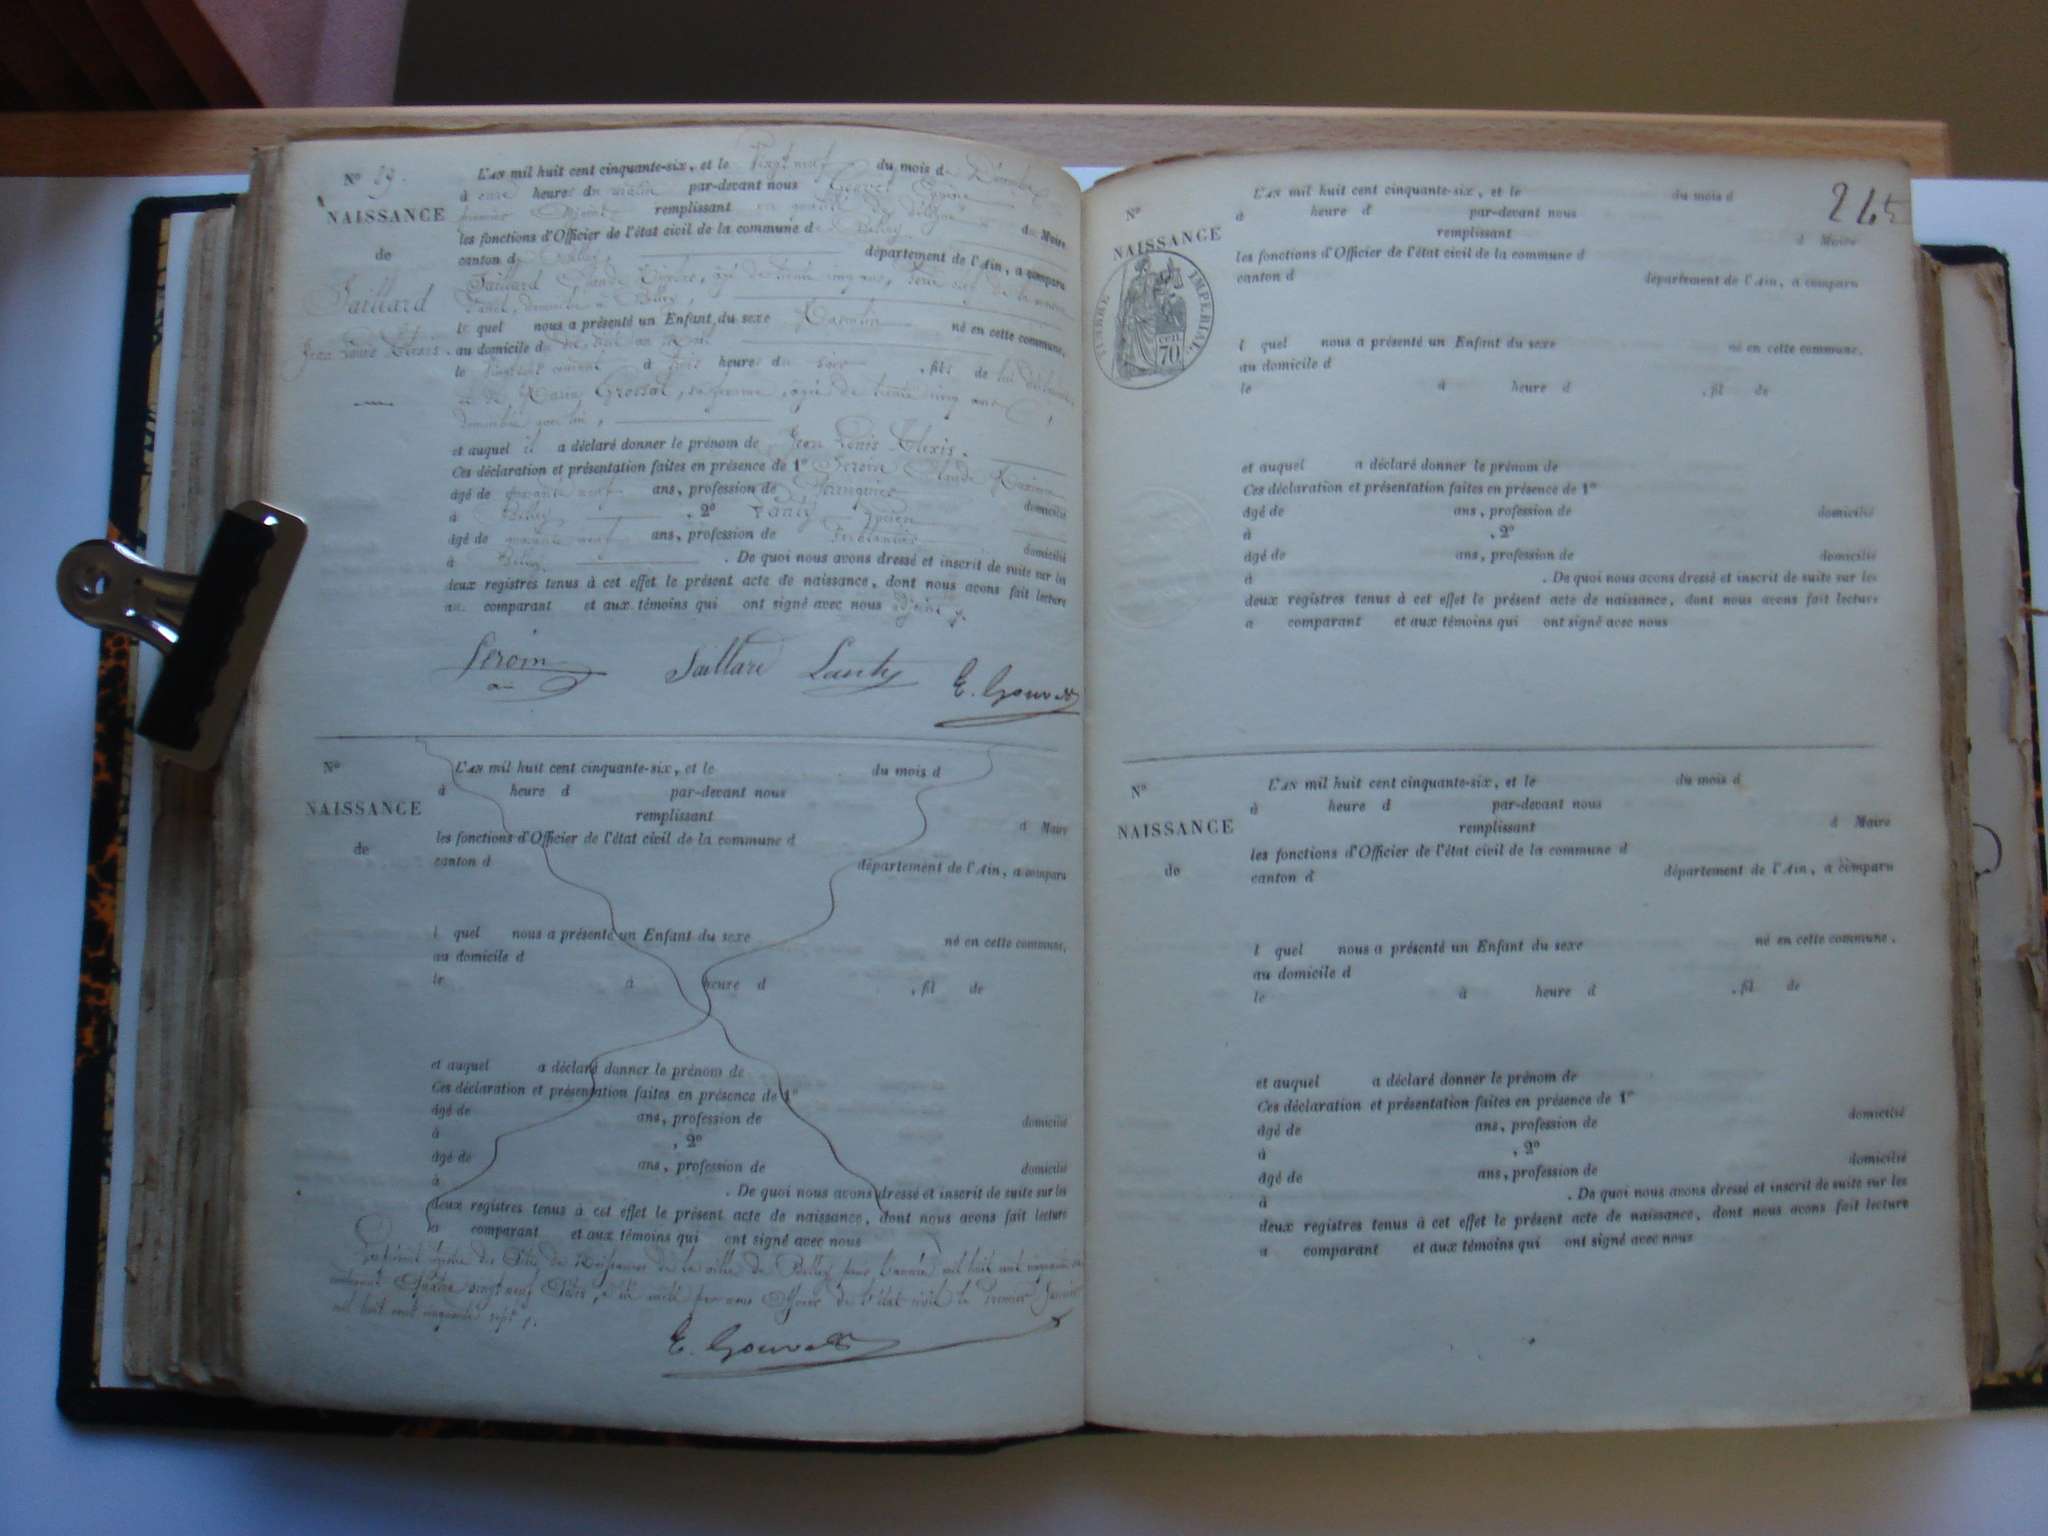 N° 89. L'AN mil huit cent cinquante-six, et le Vingt neuf du mois de Décembre
à onze heures du matin par-devant nous Gouvet
premier Adjoint remplissant en qualité de délégué du Maire
NAISSANCE
les fonctions d'Officier de l'état civil de la commune de Belley,
de
canton de Belley, département de l'Ain, a comparu
Saillard Claude âgé de trente cinq ans, de la
Jean Louis Alexis.
domicilié à Belley,
le quel nous a présenté un Enfant du sexe Masculin né en cette commune,
au domicile du
le courant à trois heures du soir, fils de lui déclarant,
et de Marie Grossat, sa femme, âgée de trente cinq ans,
domiciliée avec lui,
et auquel il a déclaré donner le prénom de Jean Louis Alexis.
Ces déclaration et présentation faites en présence de 1° Feroin Claude
âgé de neuf ans, profession de Perruquier domicilié
à Belley, , 2° Lanty
âgé de neuf ans, profession de Ferblantier domicilié
à Belley, . De quoi nous avons dressé et inscrit de suite sur les
deux registres tenus à cet effet le présent acte de naissance, dont nous avons fait lecture
au comparant et aux témoins qui ont signé avec nous adjoint
Feroin Saillard Lanty E. Gouvet
N° L'AN mil huit cent cinquante-six, et le du mois d
à heure d par-devant nous
remplissant d Maire
NAISSANCE
les fonctions d'Officier de l'état civil de la commune d
de
canton d département de l'Ain, a comparu
l quel nous a présenté un Enfant du sexe né en cette commune,
au domicile d
le à heure d , fil de
et auquel a déclaré donner le prénom de
Ces déclaration et présentation faites en présence de 1°
âgé de ans, profession de domicilié
à , 2°
âgé de ans, profession de domicilié
à . De quoi nous avons dressé et inscrit de suite sur les
deux registres tenus à cet effet le présent acte de naissance, dont nous avons fait lecture
a comparant et aux témoins qui ont signé avec nous
Le présent registre des Actes de Naissances de la ville de Belley pour l'année mil huit cent cinquante six
contenant Quatre vingt neuf Actes, a été par nous Officier de l'état civil le Premier Janvier
mil huit cent cinquante sept.
E. Gouvet
265
N° L'AN mil huit cent cinquante-six, et le du mois d
à heure d par-devant nous
remplissant d Maire
NAISSANCE
les fonctions d'Officier de l'état civil de la commune d
canton d département de l'Ain, a comparu
TIMBRE IMPERIAL.
70 cen.
l quel nous a présenté un Enfant du sexe né en cette commune,
au domicile d
le à heure d , fil de
et auquel a déclaré donner le prénom de
Ces déclaration et présentation faites en présence de 1°
âgé de ans, profession de domicilié
à , 2°
âgé de ans, profession de domicilié
à . De quoi nous avons dressé et inscrit de suite sur les
deux registres tenus à cet effet le présent acte de naissance, dont nous avons fait lecture
a comparant et aux témoins qui ont signé avec nous
N° L'AN mil huit cent cinquante-six, et le du mois d
à heure d par-devant nous
remplissant d Maire
NAISSANCE
les fonctions d'Officier de l'état civil de la commune d
de
canton d département de l'Ain, a comparu
l quel nous a présenté un Enfant du sexe né en cette commune,
au domicile d
le à heure d , fil de
et auquel a déclaré donner le prénom de
Ces déclaration et présentation faites en présence de 1°
âgé de ans, profession de domicilié
à , 2°
âgé de ans, profession de domicilié
à . De quoi nous avons dressé et inscrit de suite sur les
deux registres tenus à cet effet le présent acte de naissance, dont nous avons fait lecture
a comparant et aux témoins qui ont signé avec nous